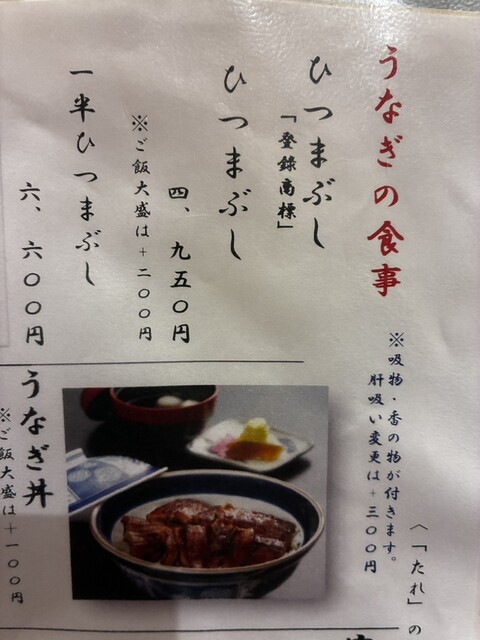 うなぎの食事
※吸物・香の物が付きます。
肝吸い変更は+三〇〇円
〈「たれ」の
ひつまぶし
「登録商標」
ひつまぶし
四、九五〇円
※ご飯大盛は+二〇〇円
一半ひつまぶし
六、六〇〇円
うなぎ丼
※ご飯大盛は+一〇〇円